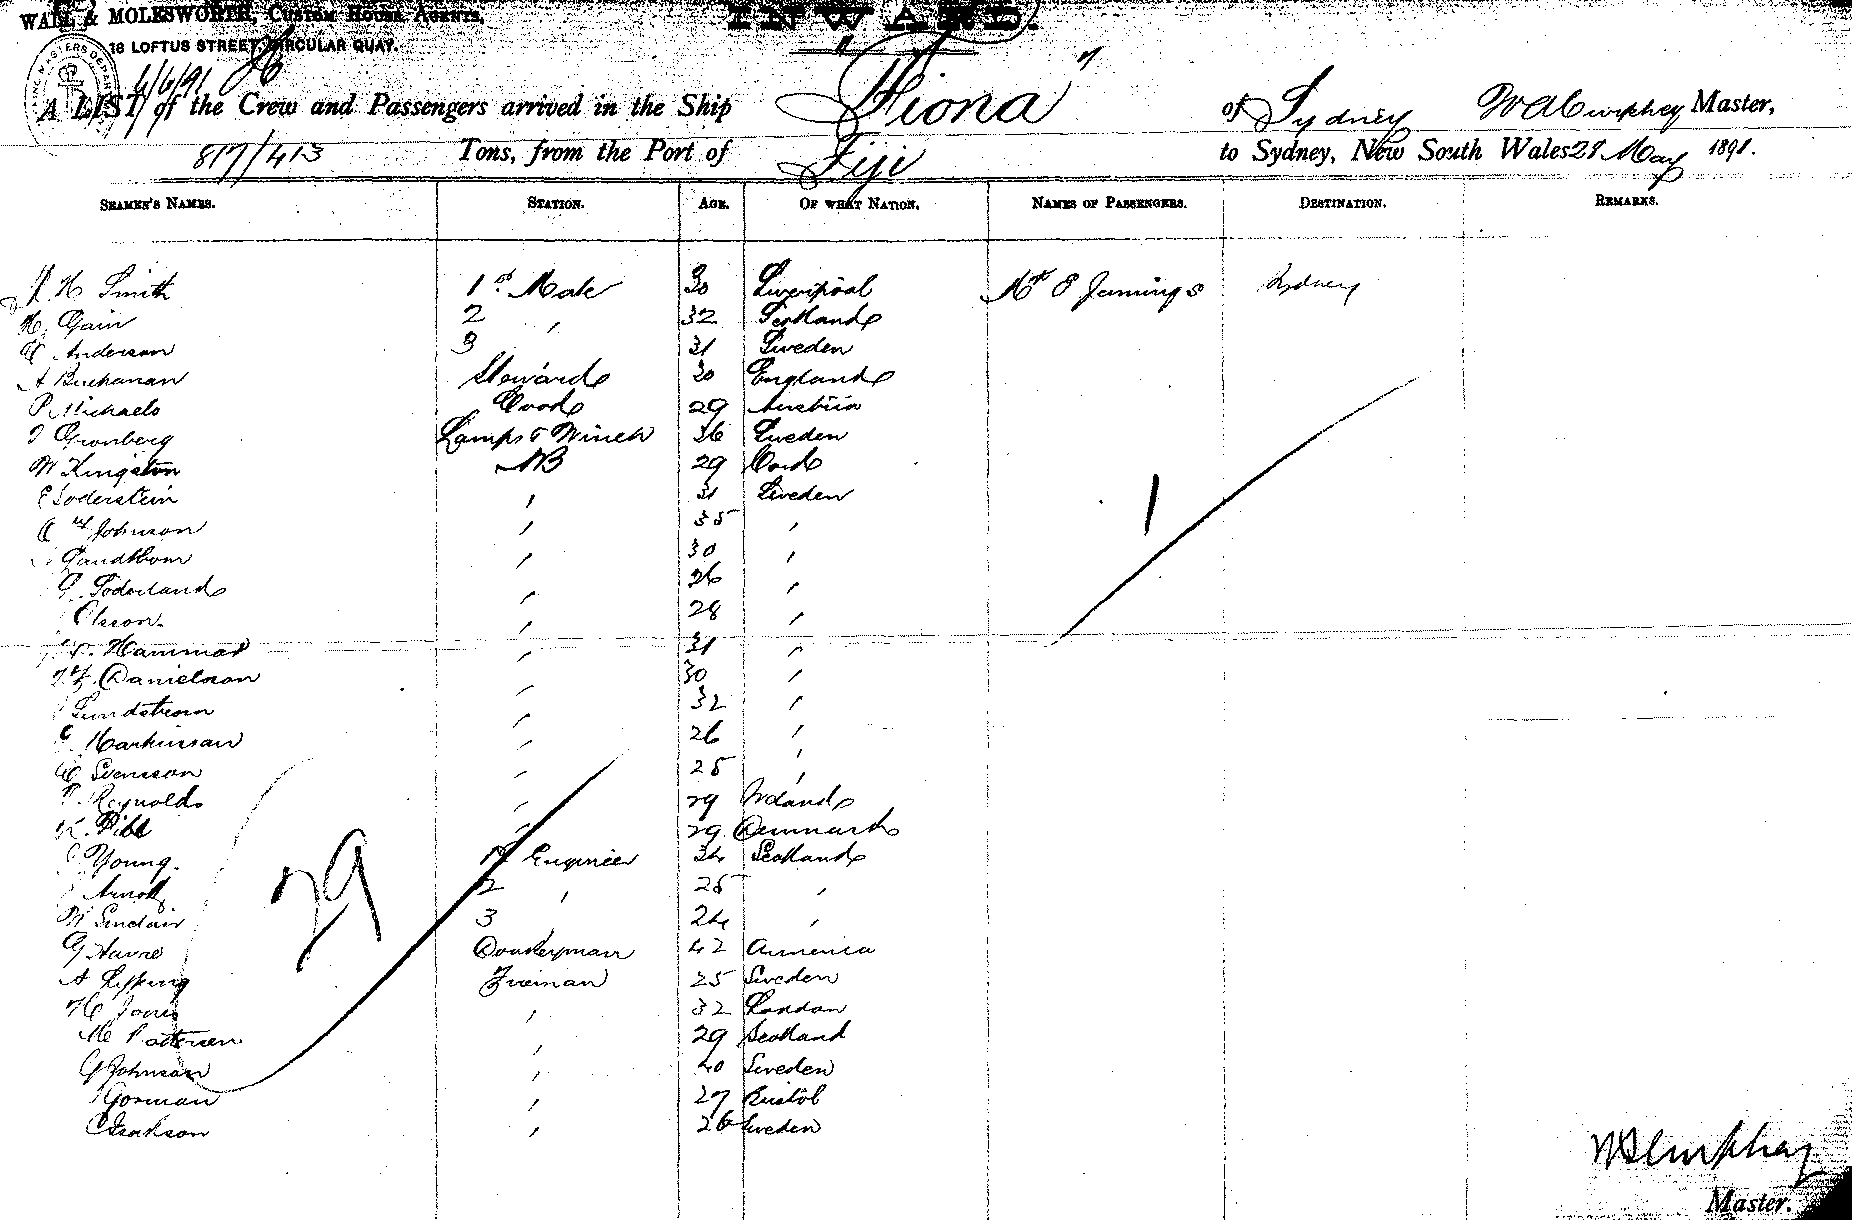 WALL & MOLESWORTH, CUSTOM HOUSE AGENTS,
18 LOFTUS STREET, CIRCULAR QUAY.
INWARD.
4/6/91
A LIST of the Crew and Passengers arrived in the Ship "Fiona" of Sydney Master,
817/413 Tons, from the Port of Fiji to Sydney, New South Wales 28 May 1891.
SEAMEN'S NAMES. STATION. AGE. OF WHAT NATION. NAMES OF PASSENGERS. DESTINATION. REMARKS.
H Smith 1st Mate 30 Liverpool Mr Jennings Sydney
Gain 2 " 32 Scotland
Anderson 3 31 Sweden
A Buchanan Steward 30 England
P Michaels Cook 29 Austria
Gronberg Lamps & Winch 36 Sweden
W Kingston AB 29 Cork
Soderstein " 31 Sweden
Johnson " 35 "
Sandbom " 30 "
G. Soderland " 26 "
Olsson " 28 "
Hammar " 31 "
Danielson " 30 "
Lundstrom " 32 "
" 26 "
Svensson " 25 "
Reynolds " 29 Ireland
" 29 Denmark
Young 1st Engineer 34 Scotland
Arnott 2 " 25 "
W Sinclair 3 " 24 "
G Havre Donkeyman 42 America
A Fireman 25 Sweden
H Jones " 32 London
" 29 Scotland
G Johnson " 40 Sweden
Gorman " 27 Bristol
Isakson " 26 Sweden
29
1
Master.